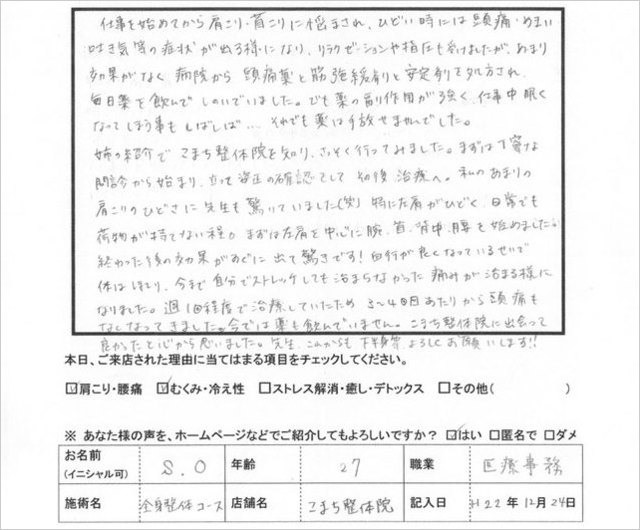 仕事を始めてから肩こり・首こりに悩まされ、ひどい時には頭痛・めまい
吐き気等の症状が出る様になり、リラクゼーションや指圧も受けましたが、あまり
効果がなく病院から頭痛薬と筋弛緩剤と安定剤を処方され、
毎日薬を飲んでしのいでいました。でも薬の副作用が強く、仕事中眠く
なってしまう事もしばしば…それでも薬は手放せませんでした。
姉の紹介でこまち整体院を知り、さっそく行ってみました。まずは丁寧な
問診から始まり、立って姿正の確認をして、その後治療へ。私のあまりの
肩こりのひどさに先生も驚いていました(笑) 特に左肩がひどく、日常でも
荷物が持てない程。まずは左肩を中心に腕、首、背中、腰を始めました。
終わった後の効果がすぐに出て驚きです!血行が良くなっているせいで
体はほてり、今まで自分でストレッチしても治まらなかった痛みが治まる様に
なりました。週1回程度で治療していたため3〜4回あたりから頭痛も
なくなってきました。今では薬も飲んでいません。こまち整体院に出会って
良かったと心から思いました。先生、これからもよろしくお願いします!!
本日、ご来店された理由に当てはまる項目をチェックしてください。
☑肩こり・腰痛 ☑むくみ・冷え性 □ストレス解消・癒し・デトックス □その他( )
※ あなた様の声を、ホームページなどでご紹介してもよろしいですか? ☑はい □匿名で □ダメ
お名前 (イニシャル可) S.O 年齢 27 職業 医療事務
施術名 全身整体コース 店舗名 こまち整体院 記入日 H22年12月24日